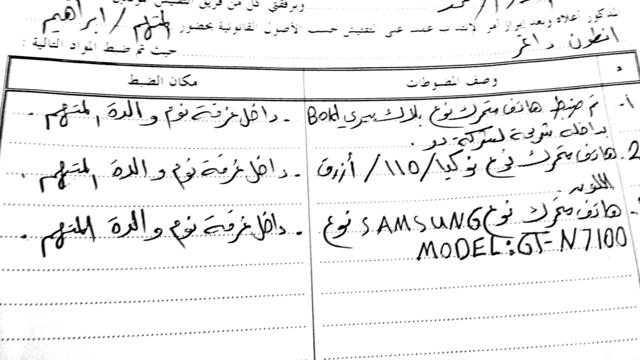 وبرفقتي كل من فريق التفتيش
المذكور أعلاه وبعد إبراز أمر الإنتداب عمد على التفتيش حسب الأصول القانونية بحضور المتهم / ابراهيم
انطون داغر حيث تم ضبط المواد التالية :
م وصف المضبوطات مكان الضبط
1- تم ضبط هاتف متحرك نوع بلاك بيري Bold - داخل غرفة نوم والدة المتهم .
بداخله شريحة لشركة دو .
2- هاتف متحرك نوع نوكيا / 110 / أزرق - داخل غرفة نوم والدة المتهم .
اللون .
- هاتف متحرك نوع SAMSUNG نوع - داخل غرفة نوم والدة المتهم .
MODEL: GT-N7100